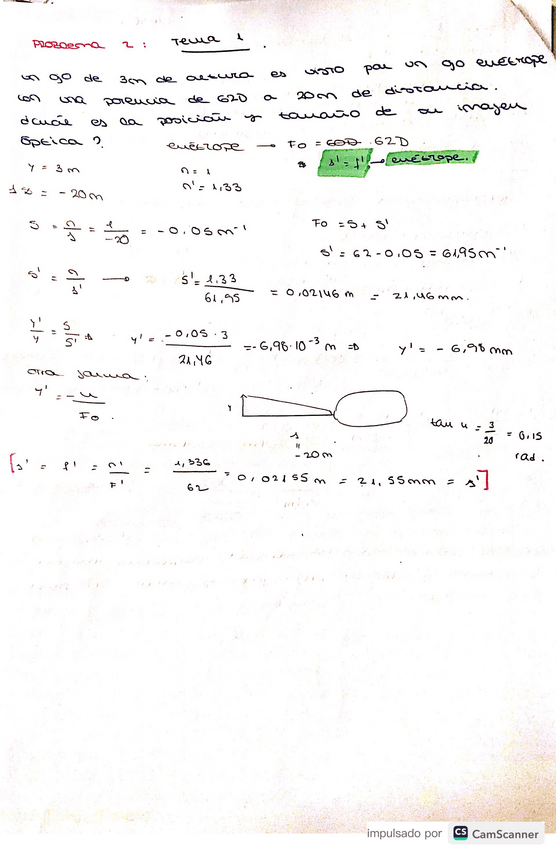 PROBLEMA 2: Tema 1.
un ojo de 3m de altura es visto por un ojo emétrope
con una potencia de 62D a 20m de distancia.
¿cuál es la posición y tamaño de su imagen
óptica?
emétrope → Fo = 60D 62D
s' = f' → emétrope.
y = 3m
n = 1
s = -20m
n' = 1,33
S = n/s = 1/-20 = -0.05m⁻¹
Fo = S + S'
S' = 62 - 0.05 = 61,95m⁻¹
S' = n/s' → s' = 1.33/61,95 = 0,02146 m = 21,46mm.
y'/y = S/S' ⇒ y' = -0,05·3/21,46 = -6,98·10⁻³ m ⇒ y' = -6,98mm
otra forma:
y' = -u/Fo.
y
s
=
-20m
tan u = 3/20 = 0,15
rad.
[s' = f' = n'/F' = 1,336/62 = 0,02155m = 21,55mm = s']
impulsado por CS CamScanner